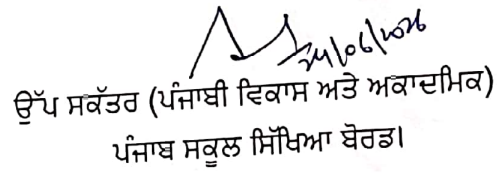 24/06/2026
ਉੱਪ ਸਕੱਤਰ (ਪੰਜਾਬੀ ਵਿਕਾਸ ਅਤੇ ਅਕਾਦਮਿਕ)
ਪੰਜਾਬ ਸਕੂਲ ਸਿੱਖਿਆ ਬੋਰਡ।